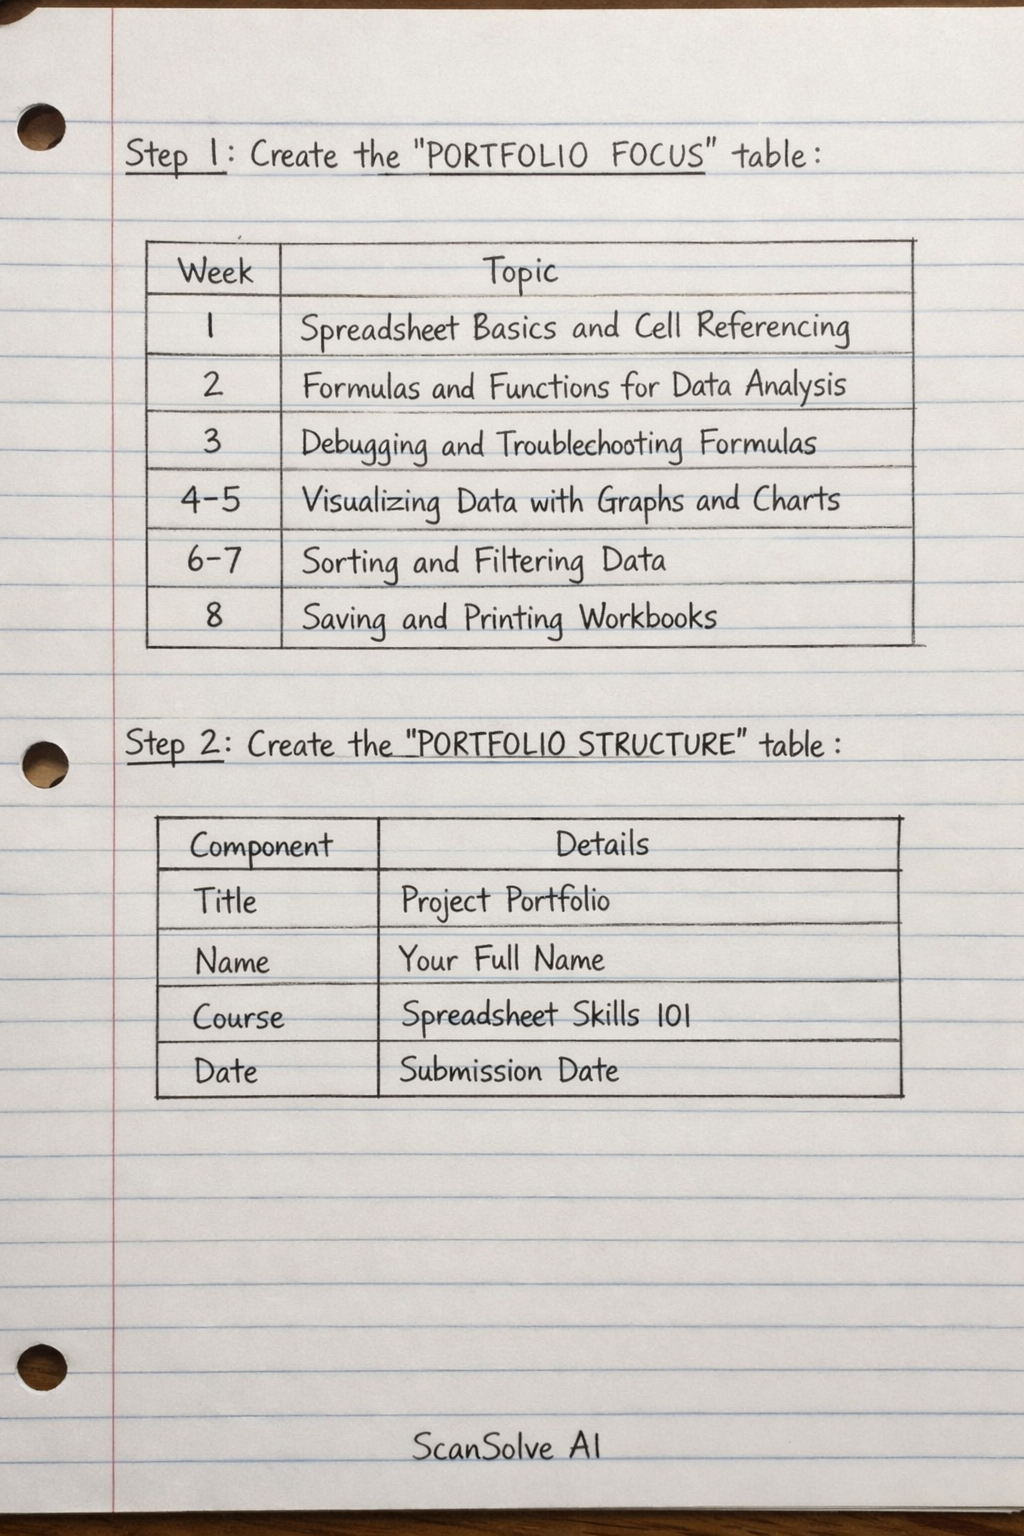 Step 1: Create the "PORTFOLIO FOCUS" table:
Week Topic
1 Spreadsheet Basics and Cell Referencing
2 Formulas and Functions for Data Analysis
3 Debugging and Troublechooting Formulas
4-5 Visualizing Data with Graphs and Charts
6-7 Sorting and Filtering Data
8 Saving and Printing Workbooks
Step 2: Create the "PORTFOLIO STRUCTURE" table:
Component Details
Title Project Portfolio
Name Your Full Name
Course Spreadsheet Skills 101
Date Submission Date
ScanSolve AI